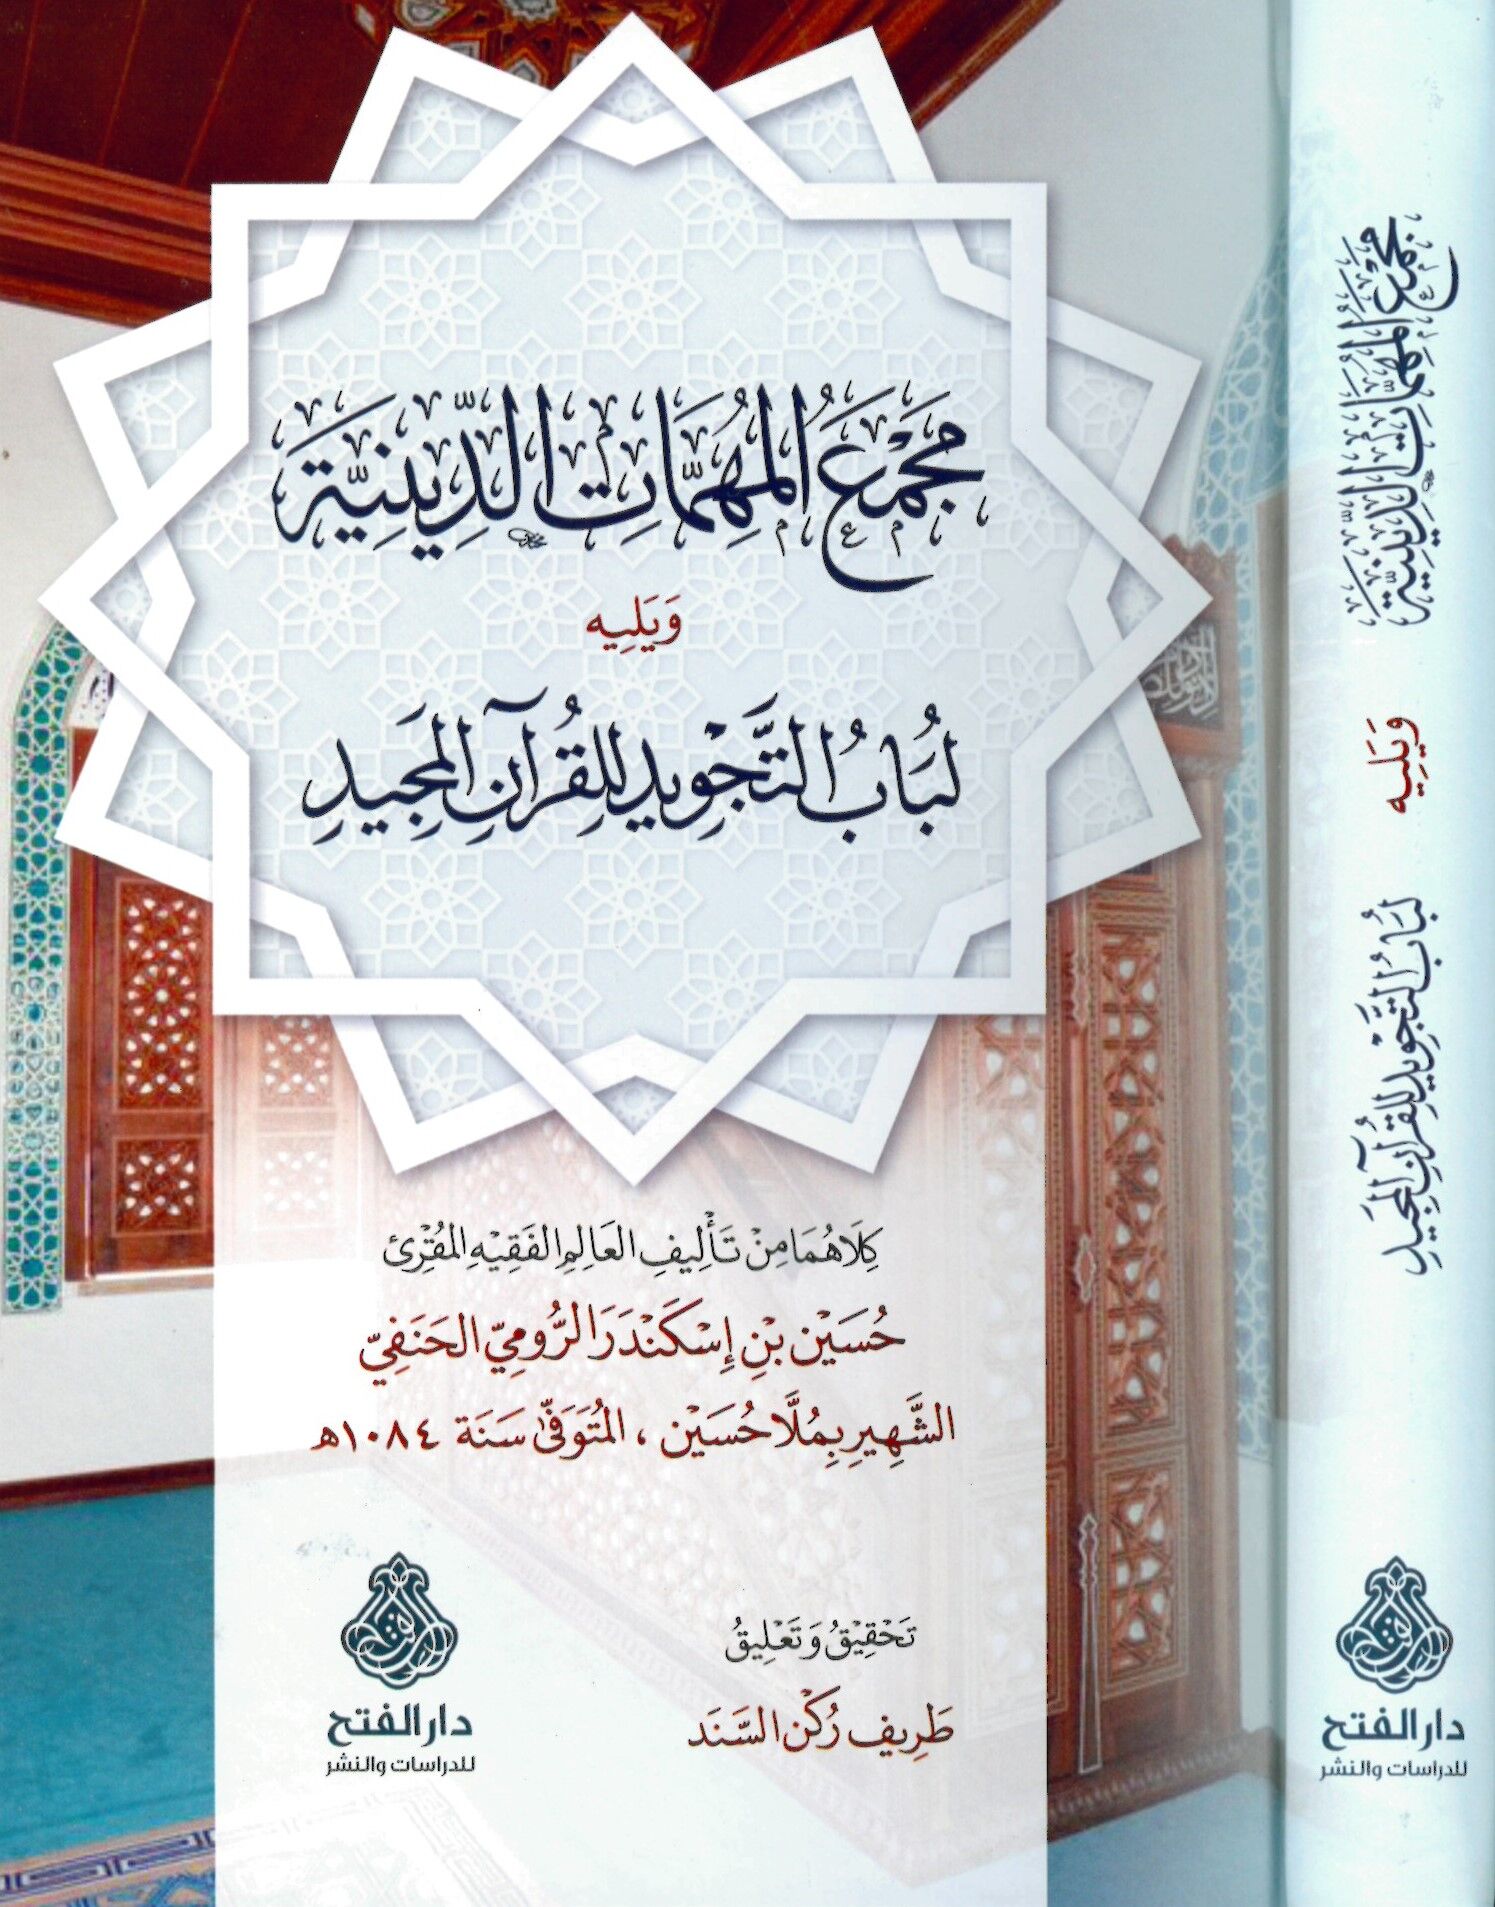 مَجْمَعُ المُهِمَّاتِ الدِّينِيَّةِ
وَيَلِيه
لُبَابُ التَّجْوِيدِ لِلقُرآنِ المَجِيدِ
كِلَاهُمَا مِنْ تَأْلِيفِ العَالِمِ الفَقِيْهِ المُقْرِئ
حُسَيْن بْنِ إِسْكَنْدَرَ الرُّومِيّ الحَنَفِيّ
الشَّهِيرِ بِمُلَّا حُسَيْن ، المُتَوَفَّىٰ سَنَة ١٠٨٤هـ
تَحْقِيْقُ وَتَعْلِيقُ
طَرِيف رُكْن السَّنَد
دار الفتح
للدراسات والنشر
مَجْمَعُ المُهِمَّاتِ الدِّينِيَّةِ
وَيَلِيه
لُبَابُ التَّجْوِيدِ لِلقُرآنِ المَجِيدِ
دار الفتح
للدراسات والنشر